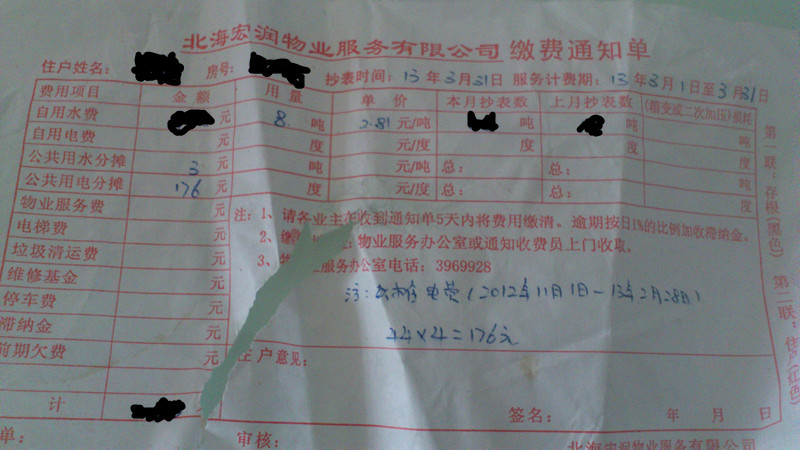 北海宏润物业服务有限公司 缴费通知单
住户姓名: 房号: 抄表时间: 13年3月31日 服务计费期: 13年3月1日至3月31日
费用项目 金额 用量 单价 本月抄表数 上月抄表数 (箱变或二次加压)损耗
自用水费 元 8吨 2.81元/吨 吨 吨 吨
自用电费 元 度 元/度 度 度 度
公共用水分摊 3元 吨 元/吨 总: 总: 吨
公共用电分摊 176元 度 元/度 总: 总: 度
物业服务费 元
电梯费 元
垃圾清运费 元
维修基金 元
停车费 元
滞纳金 元
前期欠费 元
计 元
注: 1、请各业主在收到通知单5天内将费用缴清。逾期按日1%的比例加收滞纳金。
2、缴 物业服务办公室或通知收费员上门收取。
3、物业服务办公室电话: 3969928
注: 电费(2012年11月1日-13年2月28日)
44×4=176元
住户意见:
签名: 年 月 日
单: 审核: 北海宏润物业服务有限公司
第一联: 存根(黑色) 第二联: 住户(红色)